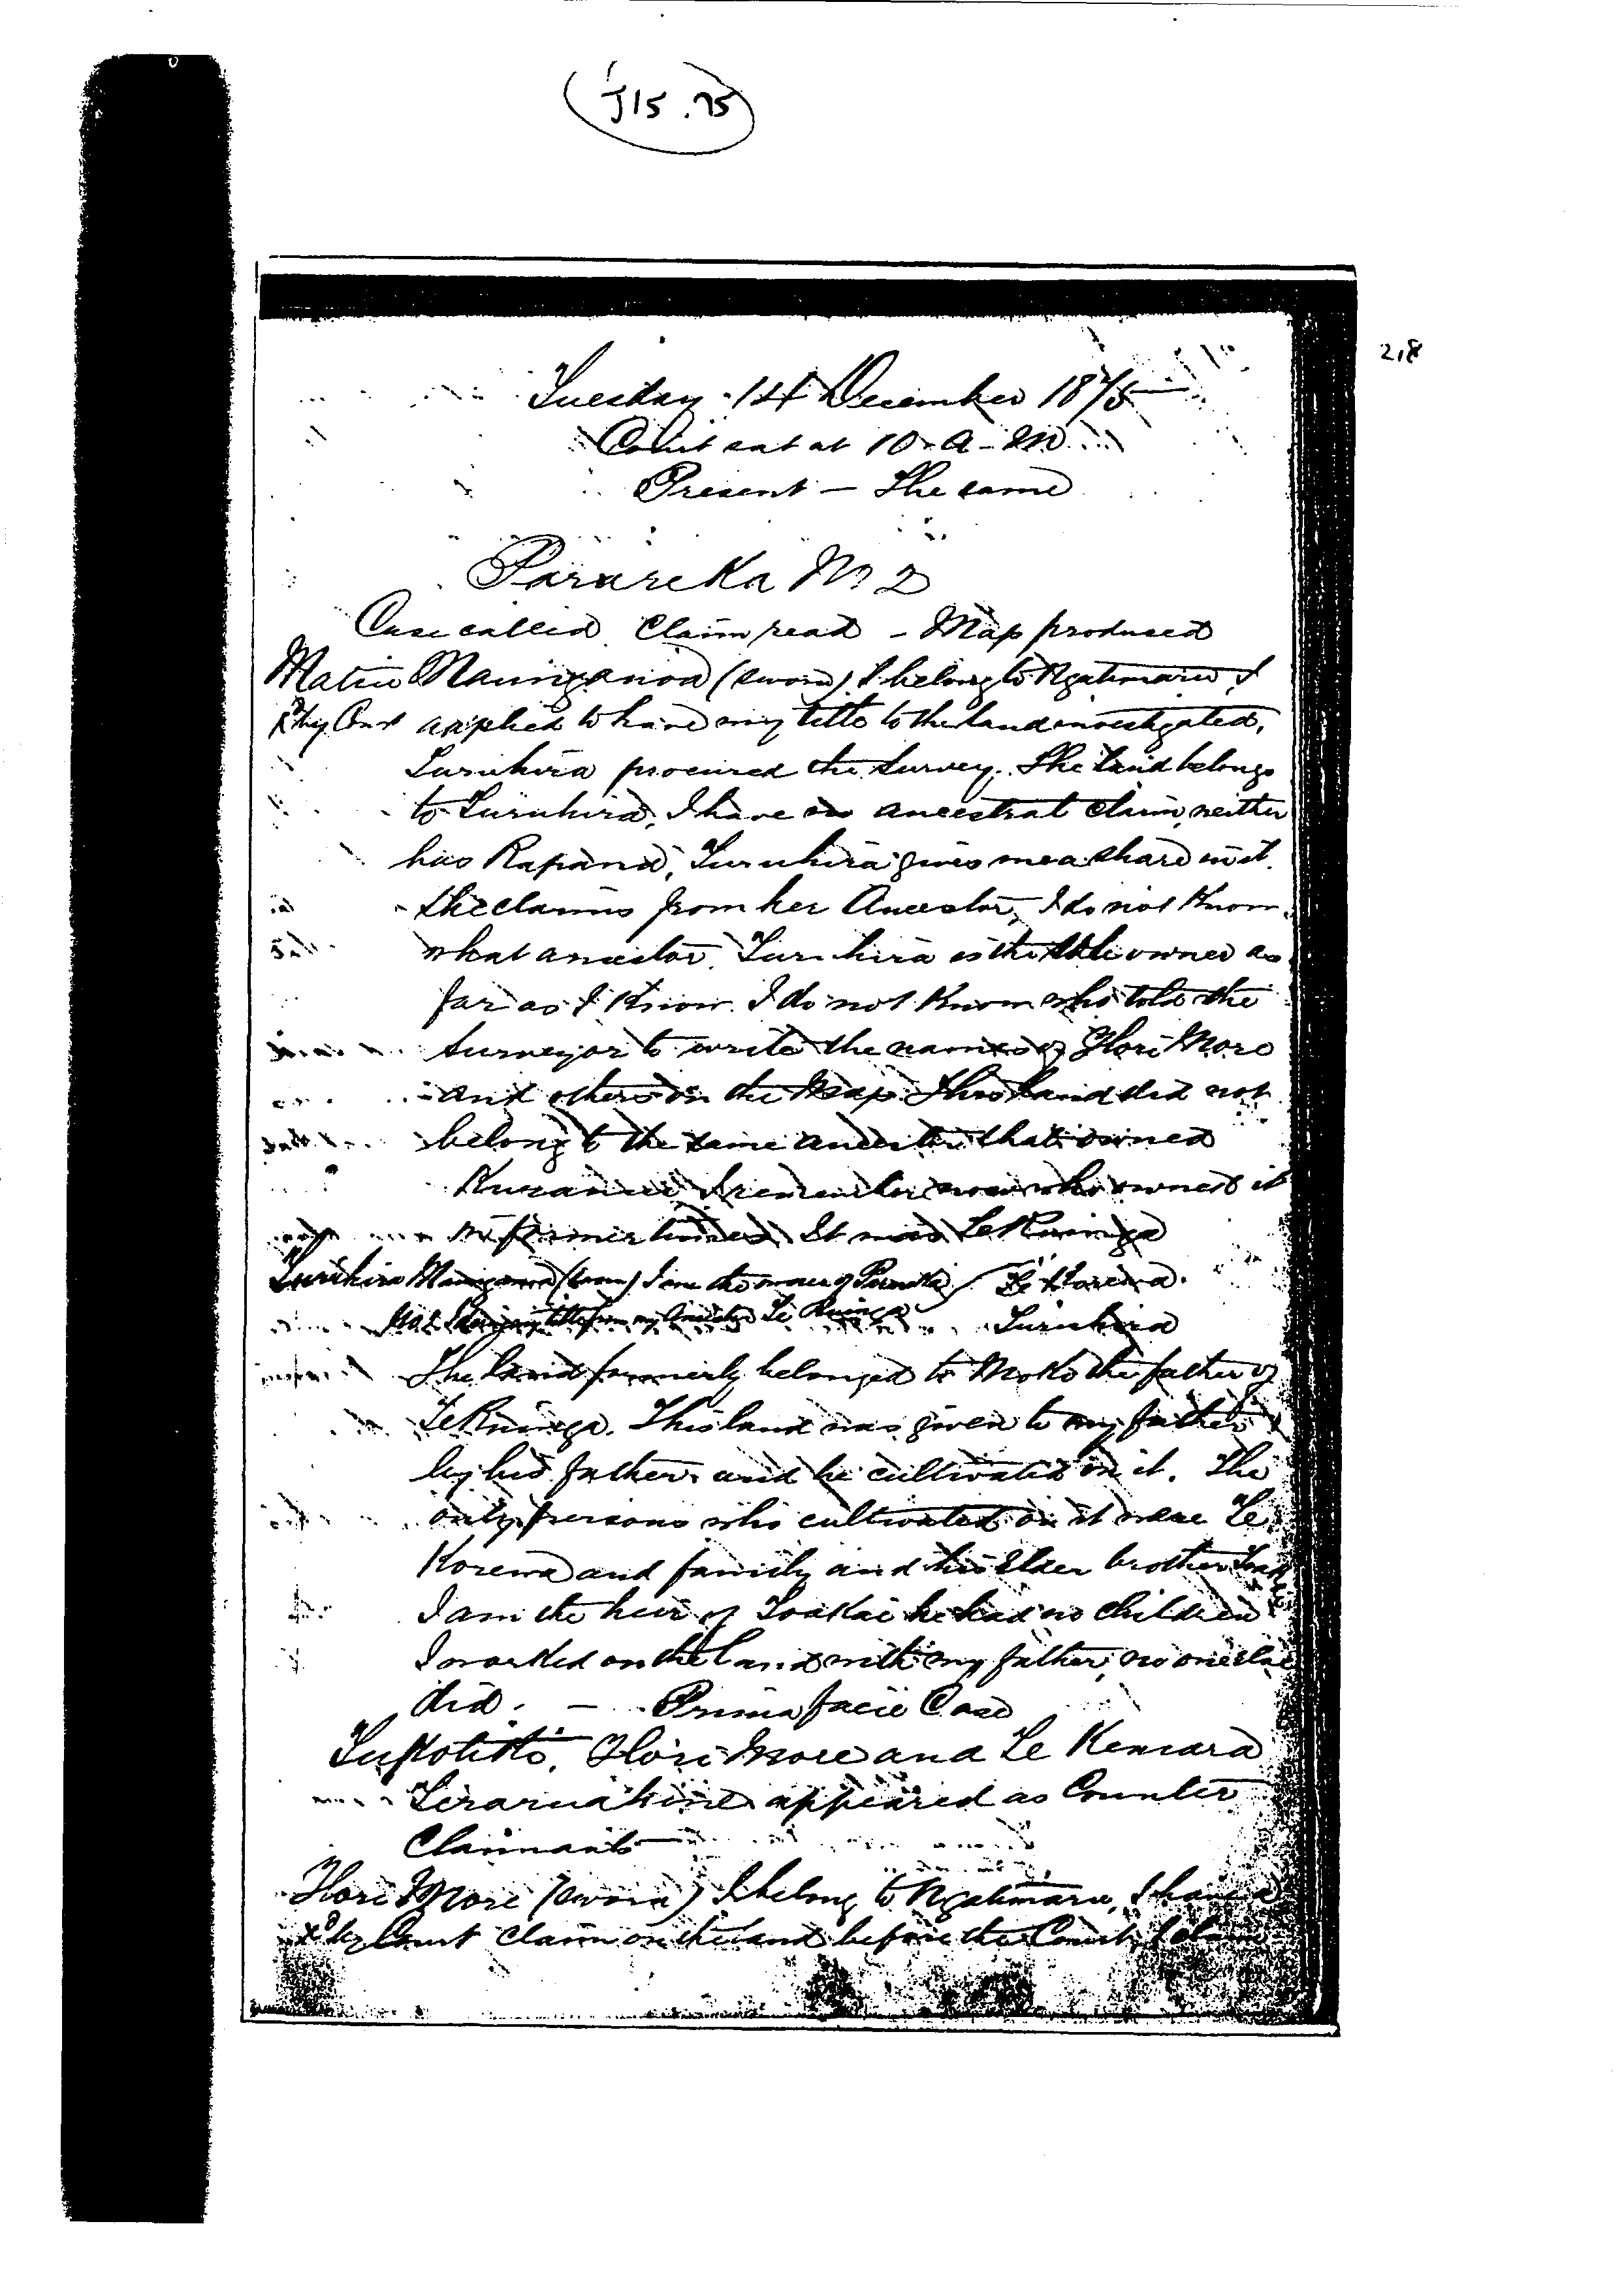 J15.75
218
Tuesday 14 December 1875
Court sat at 10. A-M
Present — The same
Parareka No 2
Case called Claim read - Map produced
Matiu (sworn) I belong to Ngatimaru I
xd by Court applied to have my title to the land investigated,
Turuhira procured the Survey. The land belongs
to Turuhira, I have no ancestral claim, neither
has Rapana, Turuhira gives me a share in it.
She claims from her Ancestor, I do not know
what ancestor. Turuhira is the sole owner as
far as I know. I do not know who told the
Surveyor to write the names of Hori More
and others on the Map. This land did not
belong to the same ancestor that owned
I remember now who owned it
in former times. It was Te Ruinga
Turuhira (sworn) I am the owner of Parareka Te Korewa.
No 2 I derive my title from my Ancestor Te Ruinga Turuhira
The land formerly belonged to Moko the father of
Te Ruinga. This land was given to my father
by his father and he cultivated on it. The
only persons who cultivated on it were Te
Korewa and family and his Elder brother
I am the heir of Toakai he had no children
I worked on the land with my father, no one else
did. — Prima facie Case
Hori More and Te
appeared as Counter
Claimants
Hori More (sworn) I belong to Ngatimaru, I have a
xd by Court claim on the land before the Court, I claim